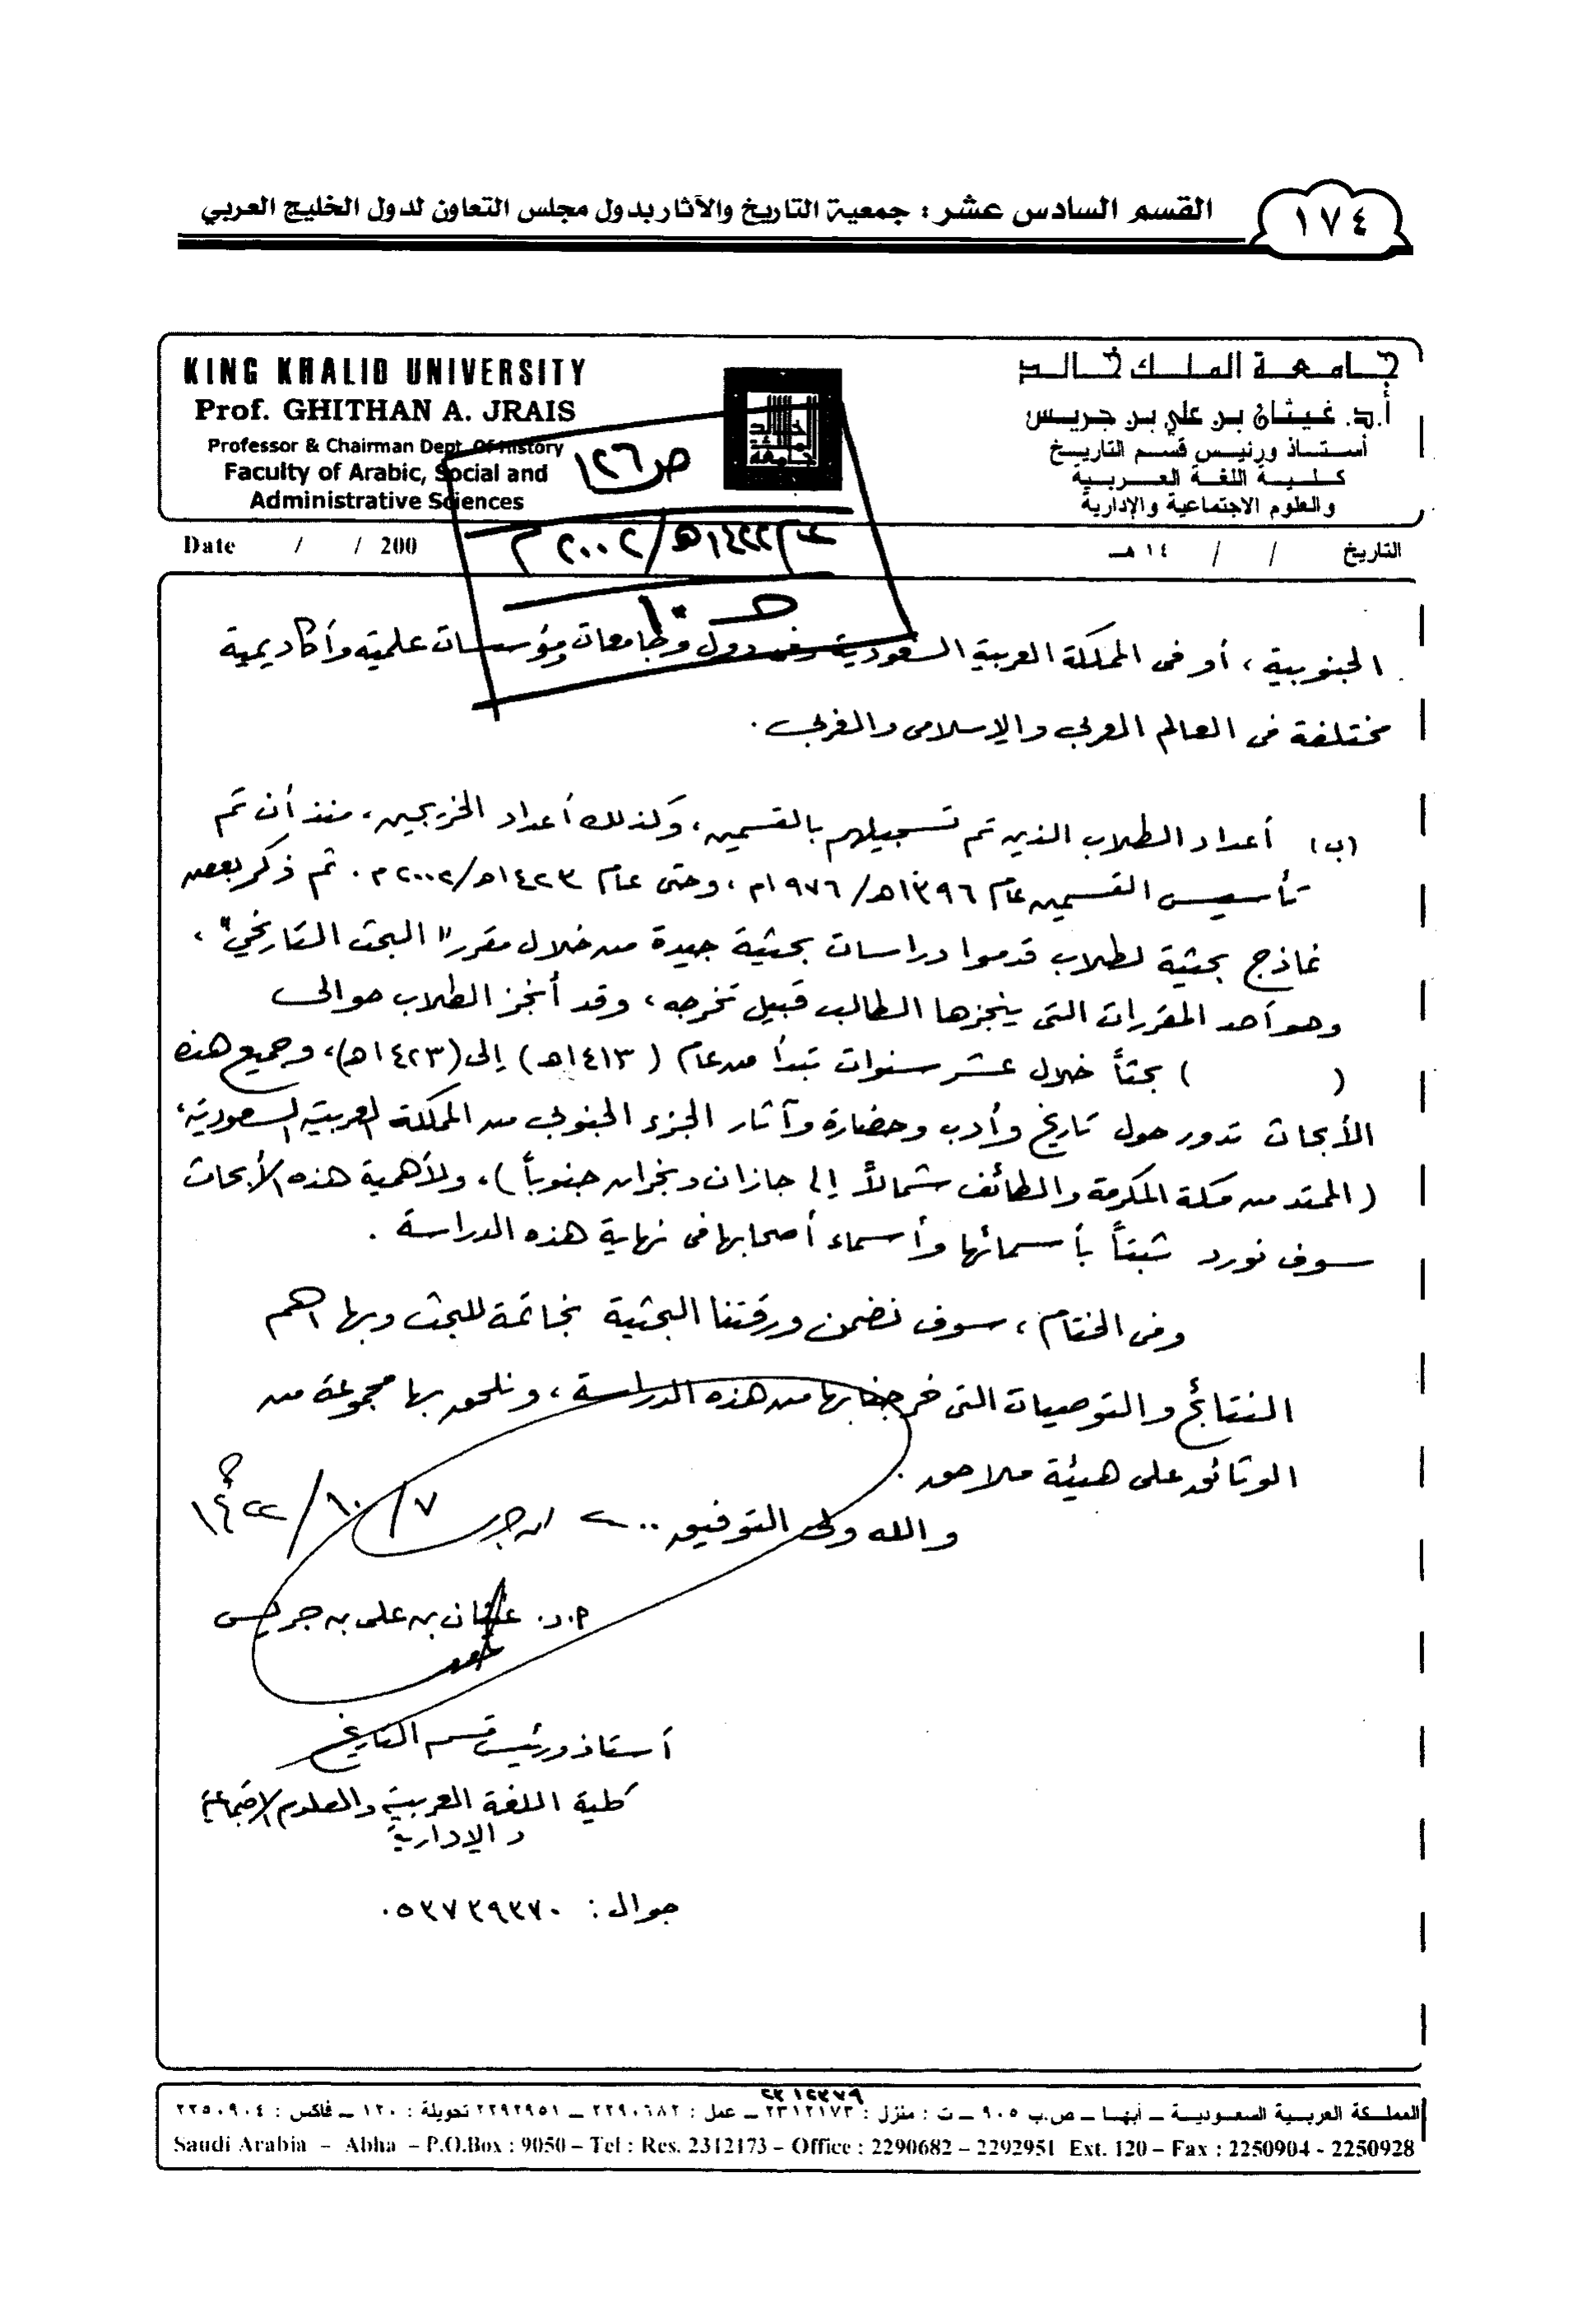 ١٧٤
القسم السادس عشر : جمعية التاريخ والآثار بدول مجلس التعاون لدول الخليج العربي
KING KHALID UNIVERSITY
Prof. GHITHAN A. JRAIS
Professor & Chairman Dept. Of History
Faculty of Arabic, Social and
Administrative Sciences
جامعة الملك خالد
أ.د. غيثان بن علي بن جريس
أستاذ ورئيس قسم التاريخ
كلية اللغة العربية
والعلوم الاجتماعية والإدارية
ص١٢٦
Date / / 200
التاريخ / / ١٤هـ
١٤٢٢هـ/٢٠٠٢م
الجنوبية ، أو في المملكة العربية السعودية وفي دول وجامعات ومؤسسات علمية وأكاديمية
مختلفة في العالم العربي والإسلامي والغربي .
(ب) أعداد الطلاب الذين تم تسجيلهم بالقسمين ، وكذلك أعداد الخريجين ، منذ أن تم
تأسيس القسمين عام ١٣٩٦هـ/ ١٩٧٦م ، وحتى عام ١٤٢٣هـ/٢٠٠٢م . ثم ذكر بعض
نماذج بحثية لطلاب قدموا دراسات بحثية جيدة من خلال مقرر " البحث التاريخي" ،
وهو أحد المقررات التي ينجزها الطالب قبيل تخرجه ، وقد أنجز الطلاب حوالي
( ) بحثاً خلال عشر سنوات تبدأ من عام ( ١٤١٣هـ ) إلى (١٤٢٣هـ) ، وجميع هذه
الأبحاث تدور حول تاريخ وأدب وحضارة وآثار الجزء الجنوبي من المملكة العربية السعودية ،
( الممتد من مكة المكرمة والطائف شمالاً إلى جازان ونجران جنوباً ) ، ولأهمية هذه الأبحاث
سوف نورد ثبتاً بأسمائها وأسماء أصحابها في نهاية هذه الدراسة .
وفي الختام ، سوف نضمن ورقتنا البحثية بخاتمة للبحث وبها أهم
النتائج والتوصيات التي خرجنا بها من هذه الدراسة ، ونلحق بها مجموعة من
الوثائق على هيئة ملاحق .
والله ولي التوفيق .. ابن جريس ٧/ ١٠/ ١٤٢٢
أ.د. غيثان بن علي بن جريس
أستاذ ورئيس قسم التاريخ
كلية اللغة العربية والعلوم الاجتماعية
والإدارية
جوال : ٠٥٣٧٣٩٣٧٠
٢٣١٢٣٧٩
المملكة العربية السعودية – أبهـا – ص.ب ٩٠٥ – ت : منزل : ٢٣١٢١٧٣ – عمل : ٢٢٩٠٦٨٢ – ٢٢٩٢٩٥١ تحويلة : ١٢٠ – فاكس : ٢٢٥٠٩٠٤
Saudi Arabia – Abha – P.O.Box : 9050 – Tel : Res. 2312173 – Office : 2290682 – 2292951 Ext. 120 – Fax : 2250904 - 2250928